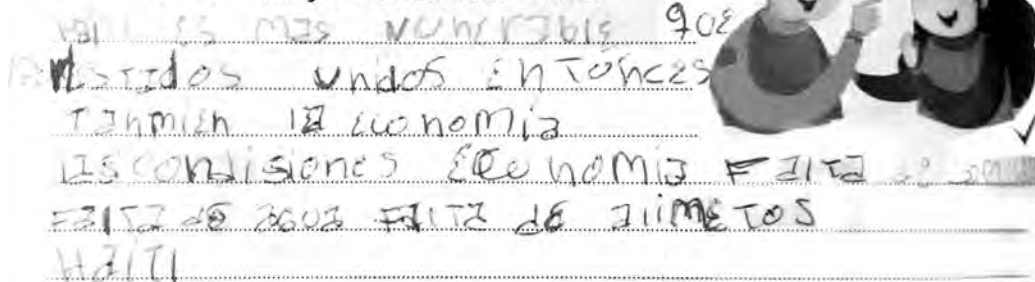 Haiti es mas vunerrable que
Estidos unidos entonces
Tanmien la economia
las condisiones ecconomia Falta de
Falta de agua Falta de alimetos
HaiTi